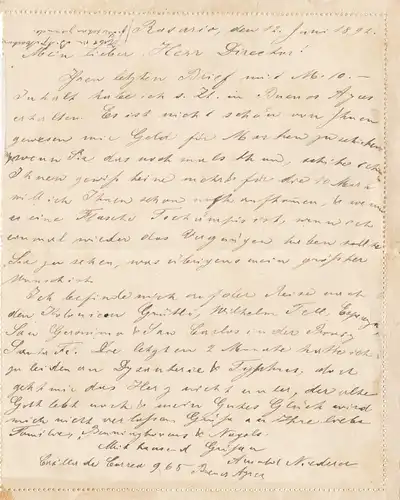 Rosario, den 12. Juni 1892.
Mein lieber Herr Director!
Ihren letzten Brief mit M. 10.–
Inhalt habe ich s. Zt. in Buenos Ayres
erhalten. Es ist nicht schön von Ihnen
gewesen mir Geld für Marken zu schicken,
wenn Sie das noch mals thun, schicke ich
Ihnen gewiß keine mehr, für die 10 Mark
will ich Ihnen schon
es eine Flasche ist, wenn ich
einmal wieder das Vergnügen haben sollte
Sie zu sehen, was übrigens mein größter
Wunsch ist.
Ich befinde mich auf der Reise nach
den Kolonieen Grütli, Wilhelm Tell,
San Geronimo & San Carlos in der Provinz
Santa Fe. Die letzten 2 Monate hatte ich
zu leiden an Dysenterie & Typhus, doch
geht mir das Herz nicht unter, der alte
Gott lebt noch & mein Gutes Glück wird
mich nicht verlassen. Grüße an Ihre liebe
Familie, & Nagels.
Mit tausend Grüßen
Calle de 965
Buenos Ayres